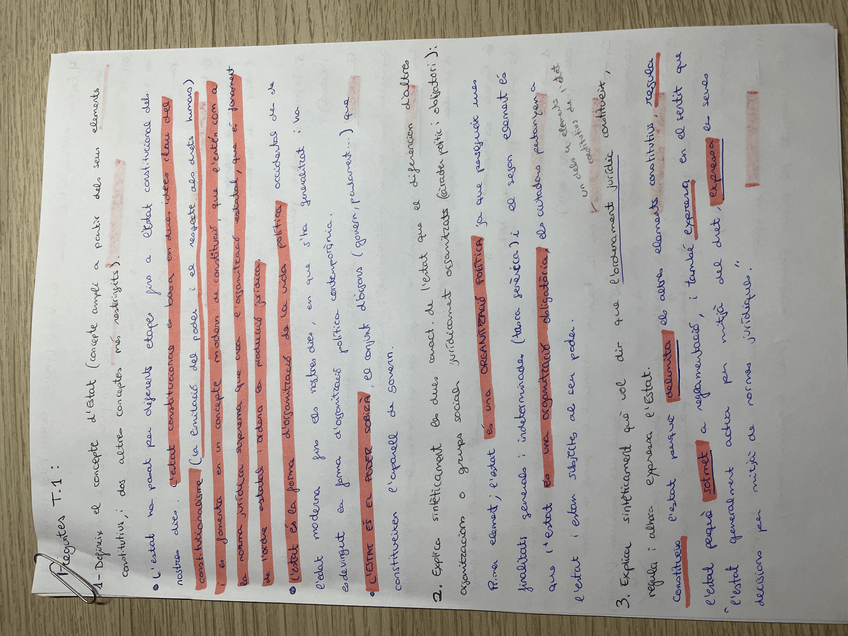 Preguntes T.1:
1- Defineix el concepte d'Estat (concepte ampli a partir dels seus elements
constitutius, i dos altres conceptes més restringits).
• L'estat ha passat per diferents etapes fins a l'Estat constitucional dels
nostres dies. L'estat constitucional es basa en dues idees clau del
constitucionalisme (la limitació del poder i el respecte als drets humans)
i es fomenta en un concepte modern de constitució, que l'entén com a
la norma jurídica suprema que crea l'organització estatal, que és fonament
de l'ordre estatal i ordena la producció jurídica.
• L'estat és la forma d'organització de la vida política occidental de
l'edat moderna fins els nostres dies, en que s'ha generalitzat i ha
esdevingut la forma d'organització política contemporània.
• L'ESTAT ÉS EL PODER SOBIRÀ, el conjunt d'òrgans (govern, parlament...) que
constitueixen l'aparell de govern.
2. Explica sintèticament les dues caract. de l'estat que el diferencien d'altres
organitzacions o grups socials jurídicament organitzats (caràcter polític i obligatori):
Primer element; l'estat és una ORGANITZACIÓ POLÍTICA ja que persegueix unes
finalitats generals i indeterminades (tasca genèrica) i el segon element és
que l'Estat és una organització obligatòria, els ciutadans pertanyen a
l'estat i estan subjectes al seu poder.
un dels 4 elements de l'estat
constitutius
3. Explica sintèticament què vol dir que l'ordenament jurídic constitueix,
regula i alhora expressa l'Estat.
Constitueix l'estat perquè delimita els altres elements constitutius, regula
l'estat perquè sotmet a reglamentació, i també expressa en el sentit que
"l'estat generalment actua per mitjà del dret, expressa les seves
decisions per mitjà de normes jurídiques."